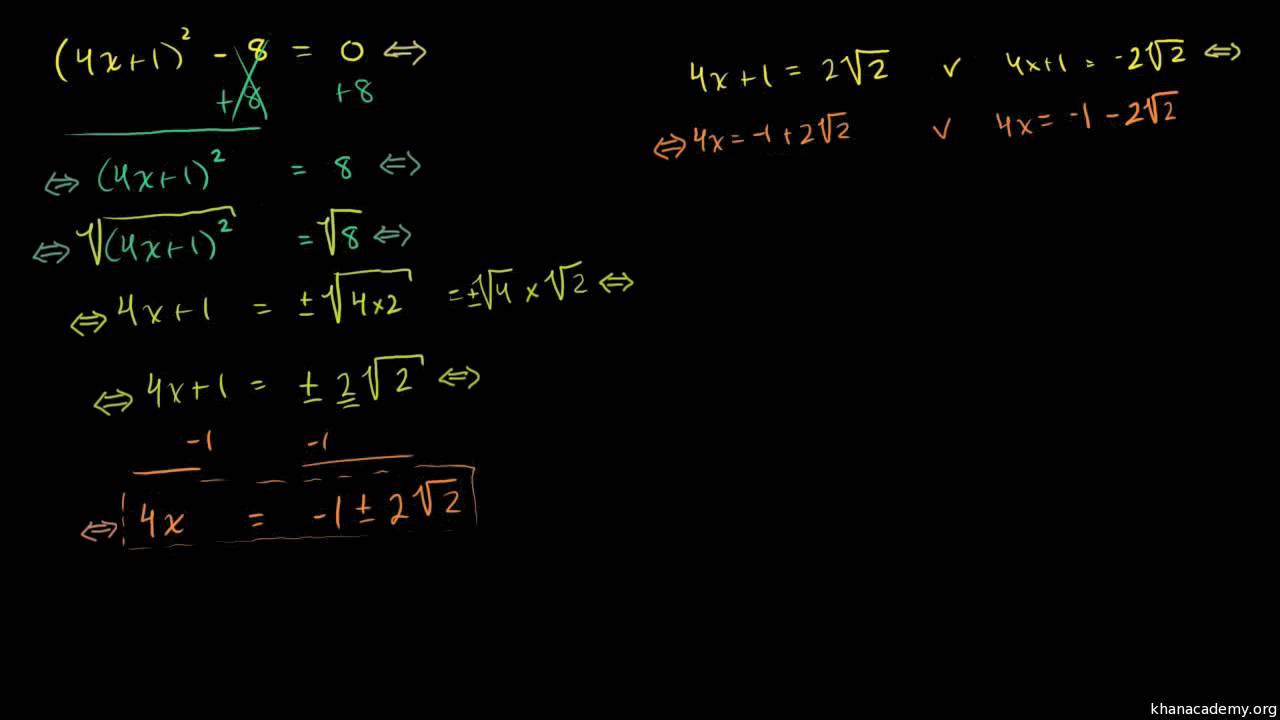 (4x+1)² - 8 = 0 ⇔
+8 +8
⇔ (4x+1)² = 8 ⇔
⇔ √(4x+1)² = √8 ⇔
⇔ 4x+1 = ±√4×2 = ±√4 × √2 ⇔
⇔ 4x+1 = ± 2√2 ⇔
-1 -1
⇔ 4x = -1 ± 2√2
4x+1 = 2√2 ∨ 4x+1 = -2√2 ⇔
⇔ 4x = -1 + 2√2 ∨ 4x = -1 - 2√2
khanacademy.org